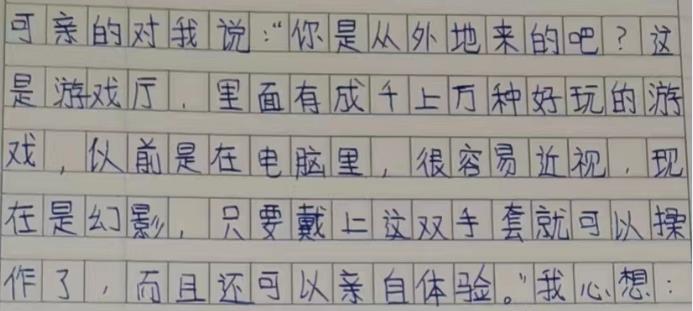 可亲的对我说:“你是从外地来的吧?这
是游戏厅,里面有成千上万种好玩的游
戏,以前是在电脑里,很容易近视,现
在是幻影,只要戴上这双手套就可以操
作了,而且还可以亲自体验。”我心想: